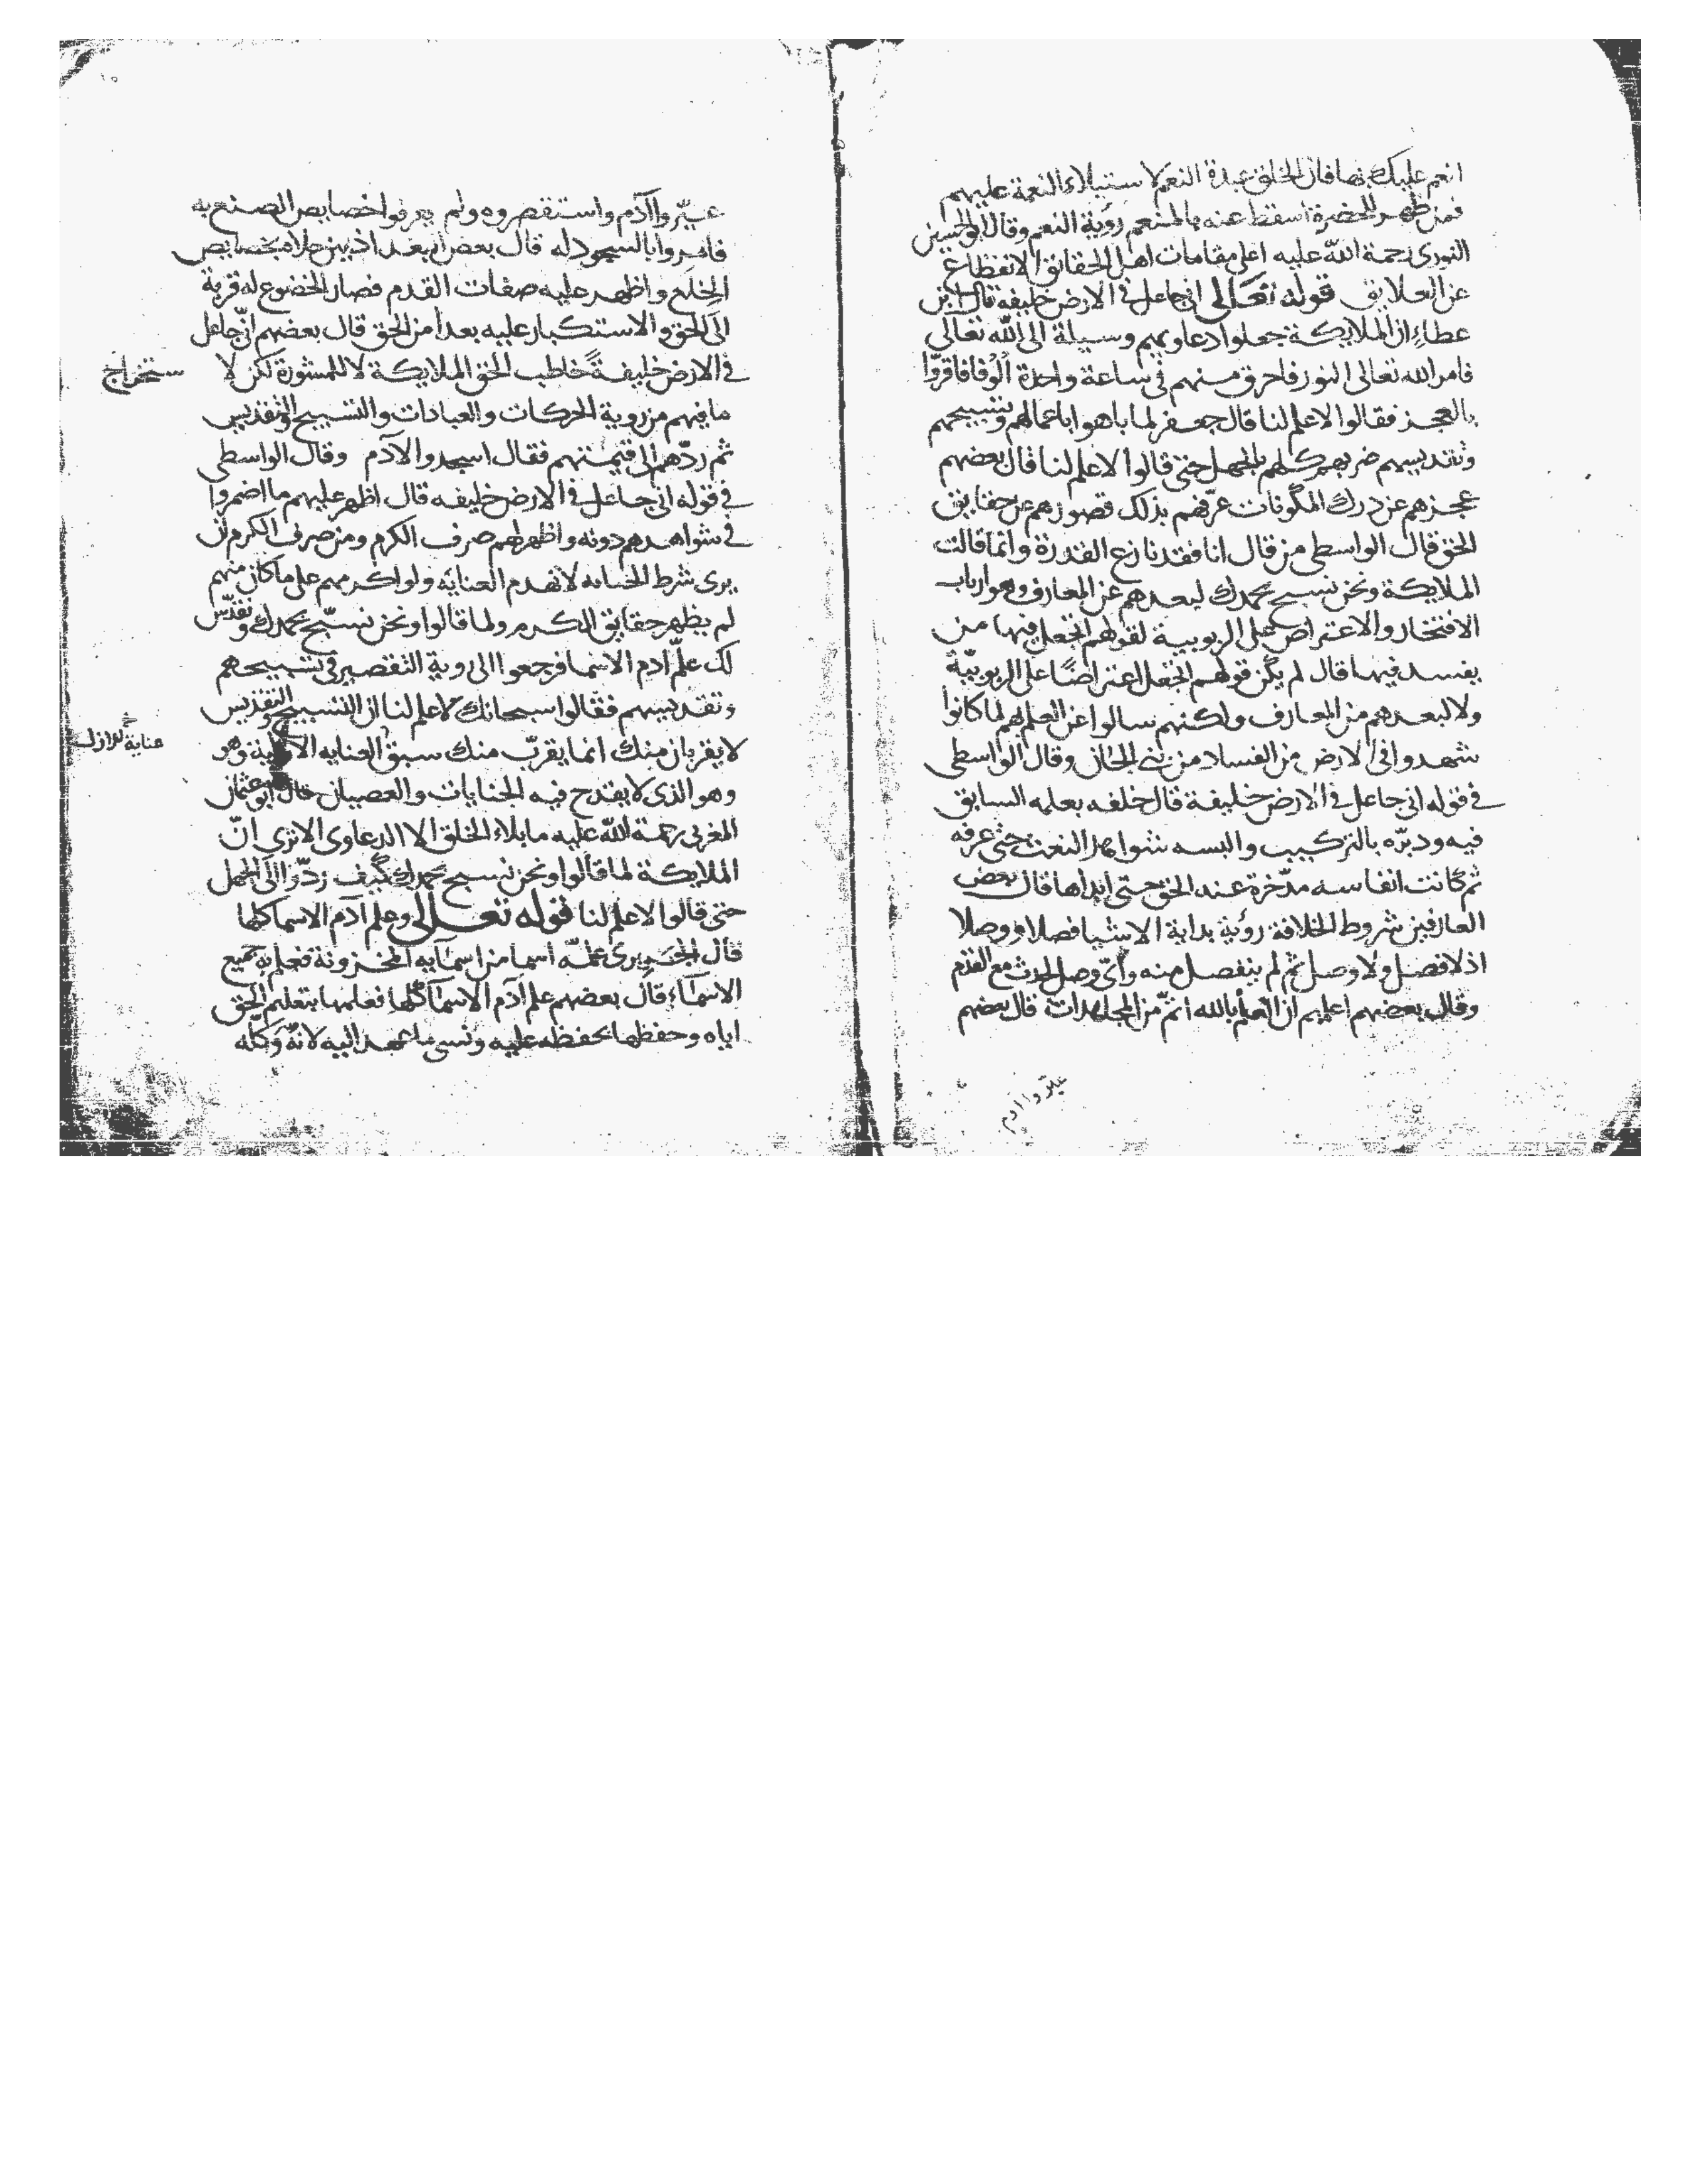 انعم عليك بها فان الخلق عبدة النعم لاستيلاء النعمة عليهم
فمن ظهر للحضرة اسقط عنه بالمنعم روية النعم وقال ابو الحسين
النورى رحمة الله عليه اعلى مقامات اهل الحقايق الانقطاع
عن العلايق قوله تعالى انى جاعل فى الارض خليفة قال ابن
عطاء ان الملايكة جعلوا دعاويهم وسيلة الى الله تعالى
فامر الله تعالى النور فاحرق منهم فى ساعة واحدة الوفا فاقروا
بالعجز فقالوا لا علم لنا قال جعفر لما باهوا باعمالهم وتسبيحهم
وتقديسهم ضربهم كلهم بالجهل حتى قالوا لا علم لنا قال بعضهم
عجزهم عن درك المكونات عرّفهم بذلك قصورهم عن حقايق
الحق قال الواسطى من قال انا فقد نازع القدرة وانما قالت
الملايكة ونحن نسبح بحمدك لبعدهم عن المعارف وهو ارباب
الافتخار والاعتراض على الربوبية لقولهم اتجعل فيها من
يفسد فيها قال لم يكن قولهم اتجعل اعتراضًا على الربوبيّة
ولا لبعدهم من المعارف ولكنهم سالوا عن العلم بهم لما كانوا
شهدوا فى الارض من الفساد من بنى الجان وقال الواسطى
فى قوله انى جاعل فى الارض خليفة قال خلقه بعلمه السابق
فيه ودبّره بالتركيب والبسه شواهد النعت حتى عرفه
ثم كانت انفاسه مدّخرة عند الحق حتى ابداها قال بعض
العارفين شروط الخلافة رؤية بداية الاشيا فصلا ووصلا
اذ لا فصل ولا وصل ثم لم ينفصل منه وأنّى وصل الحدث مع القدم
وقال بعضهم اعلهم ان العلم بالله اتمّ من المجاهدات قال بعضهم
عيّروا ادم
عيّروا آدم واستقصروه ولم يعرفوا خصايص الصنع به
فامروا بالسجود له قال بعض ابغداذيين حلاه بخصايص
الخلَع واظهر عليه صفات القدم فصار الخضوع له قربة
الى الحق والاستكبار عليه بعدا من الحق قال بعضهم انّى جاعل
فى الارض خليفةً خاطب الحق الملايكة لا للمشورة لكن لا
ستخراج
ما فيهم من روية الحركات والعبادات والتسبيح والتقديس
ثم ردّهم الى قيمتهم فقال اسجدوا لآدم وقال الواسطى
فى قوله انى جاعل فى الارض خليفه قال اظهر عليهم ما اضمروا
فى شواهدهم دونه واظهر لهم صرف الكرم ومن صرف الكرم ان
يرى شرط الجنايه لا تهدم العنايه ولو اكرمهم على ما كان منهم
لم يظهر حقايق الكرم ولما قالوا ونحن نسبّح بحمدك ونقدّس
لك علّم ادم الاسما فرجعوا الى روية التقصير فى تسبيحهم
وتقديسهم فقالوا سبحانك لا علم لنا ان التسبيح والتقديس
لا يقربان منك انما يقرّب منك سبق العنايه الازلية وهو
عناية الازل
وهو الذى لا يقدح فيه الجنايات والعصيان قال ابو عثمان
المغربى رحمة الله عليه ما بلاء الخلق الا الدعاوى الا ترى انّ
الملايكة لما قالوا ونحن نسبح بحمدك كيف ردّوا الى الجهل
حتى قالوا لا علم لنا قوله تعالى وعلم آدم الاسما كلها
قال الجريرى علمّه اسما من اسمآيه المخزونة فعلم به جميع
الاسمآء قال بعضهم علم آدم الاسمآ كلها فعلمها بتعليم الحق
اياه وحفظها بحفظه عليه ونسى ما عهد اليه لانه وكله